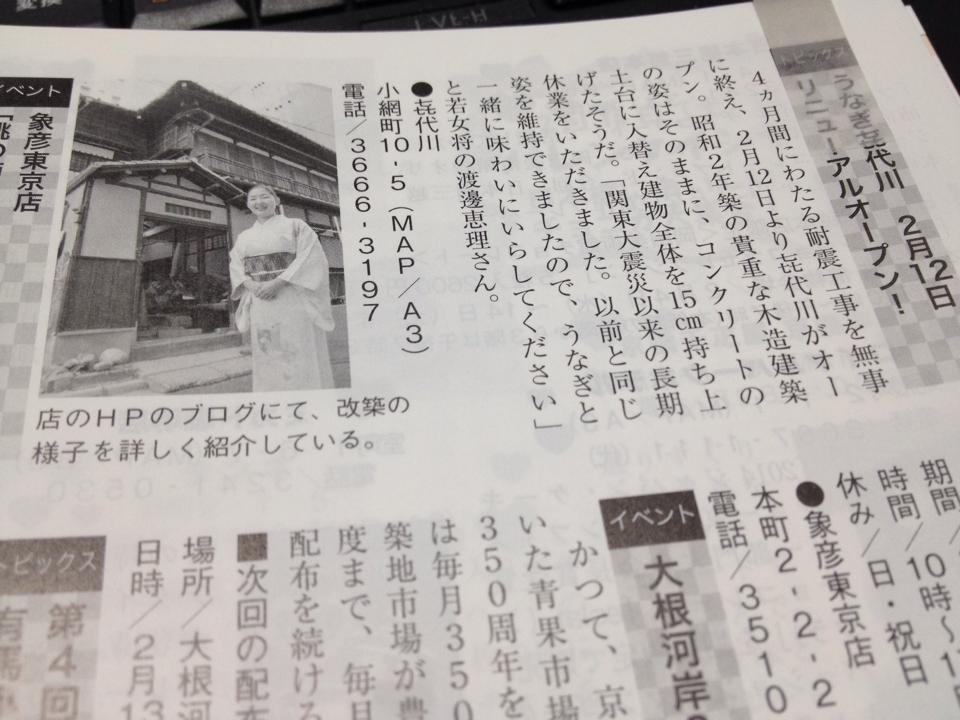 変換
トピックス
うなぎ㐂代川 2月12日
リニューアルオープン!
4ヵ月間にわたる耐震工事を無事
に終え、2月12日より㐂代川がオー
プン。昭和2年築の貴重な木造建築
の姿はそのままに、コンクリートの
土台に入替え建物全体を15㎝持ち上
げたそうだ。「関東大震災以来の長期
休業をいただきました。以前と同じ
姿を維持できましたので、うなぎと
一緒に味わいにいらしてください」
と若女将の渡邊恵理さん。
●㐂代川
小網町10-5(MAP/A3)
電話/3666-3197
店のHPのブログにて、改築の
様子を詳しく紹介している。
イベント
象彦東京店
期間
時間/10時~1
休み/日・祝日
●象彦東京店
本町2-2-2
電話/3510
イベント
大根河岸
かつて、京
いた青果市場
350周年を
は毎月350
築地市場が豊
度まで、毎月
配布を続ける
■次回の配布
場所/大根河
日時/2月13
トピックス
第4回
有馬